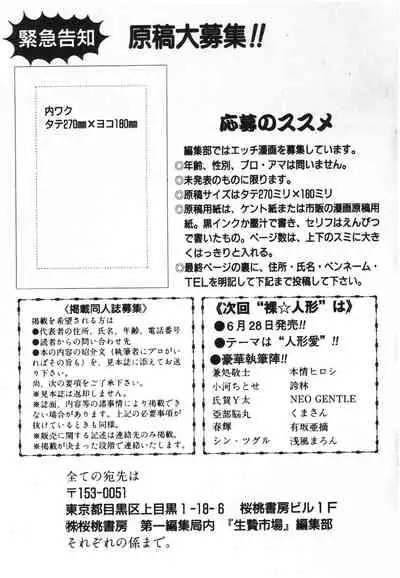 緊急告知
原稿大募集!!
内ワク
タテ270㎜×ヨコ180㎜
応募のススメ
編集部ではエッチ漫画を募集しています。
◎年齢、性別、プロ・アマは問いません。
◎未発表のものに限ります。
◎原稿サイズはタテ270ミリ×180ミリ
◎原稿用紙は、ケント紙または市販の漫画原稿用
紙。黒インクか墨汁で書き、セリフはえんぴつ
で書いたもの。ページ数は、上下のスミに大き
くはっきりと入れる。
◎最終ページの裏に、住所・氏名・ペンネーム・
TELを明記して下記まで投稿して下さい。
〈掲載同人誌募集〉
掲載を希望される方は
●代表者の住所、氏名、年齢、電話番号
●読者からの問い合わせ先
●本の内容の紹介文(執筆者にプロがい
ればその旨も)を、見本誌に添えてお送
り下さい。
尚、次の要項をご了承下さい。
※見本誌は返却しません。
※誌面、内容等の諸事情により掲載でき
ない場合があります。上記の必要事項が
抜けているときも同様。
※販売に関する記述は連絡先のみ掲載。
※掲載が決まった段階で連絡いたします。
《次回“裸☆人形”は》
●6月28日発売!!
●テーマは“人形愛”!!
●豪華執筆陣!!
兼処敬士 本情ヒロシ
小河ちとせ 誇林
氏賀Y太 NEO GENTLE
亞部脳丸 くまさん
春輝 有坂亜摘
シン・ツグル 浅風まろん
全ての宛先は
〒153-0051
東京都目黒区上目黒1-18-6 桜桃書房ビル1F
㈱桜桃書房 第一編集局内 『生贄市場』編集部
それぞれの係まで。